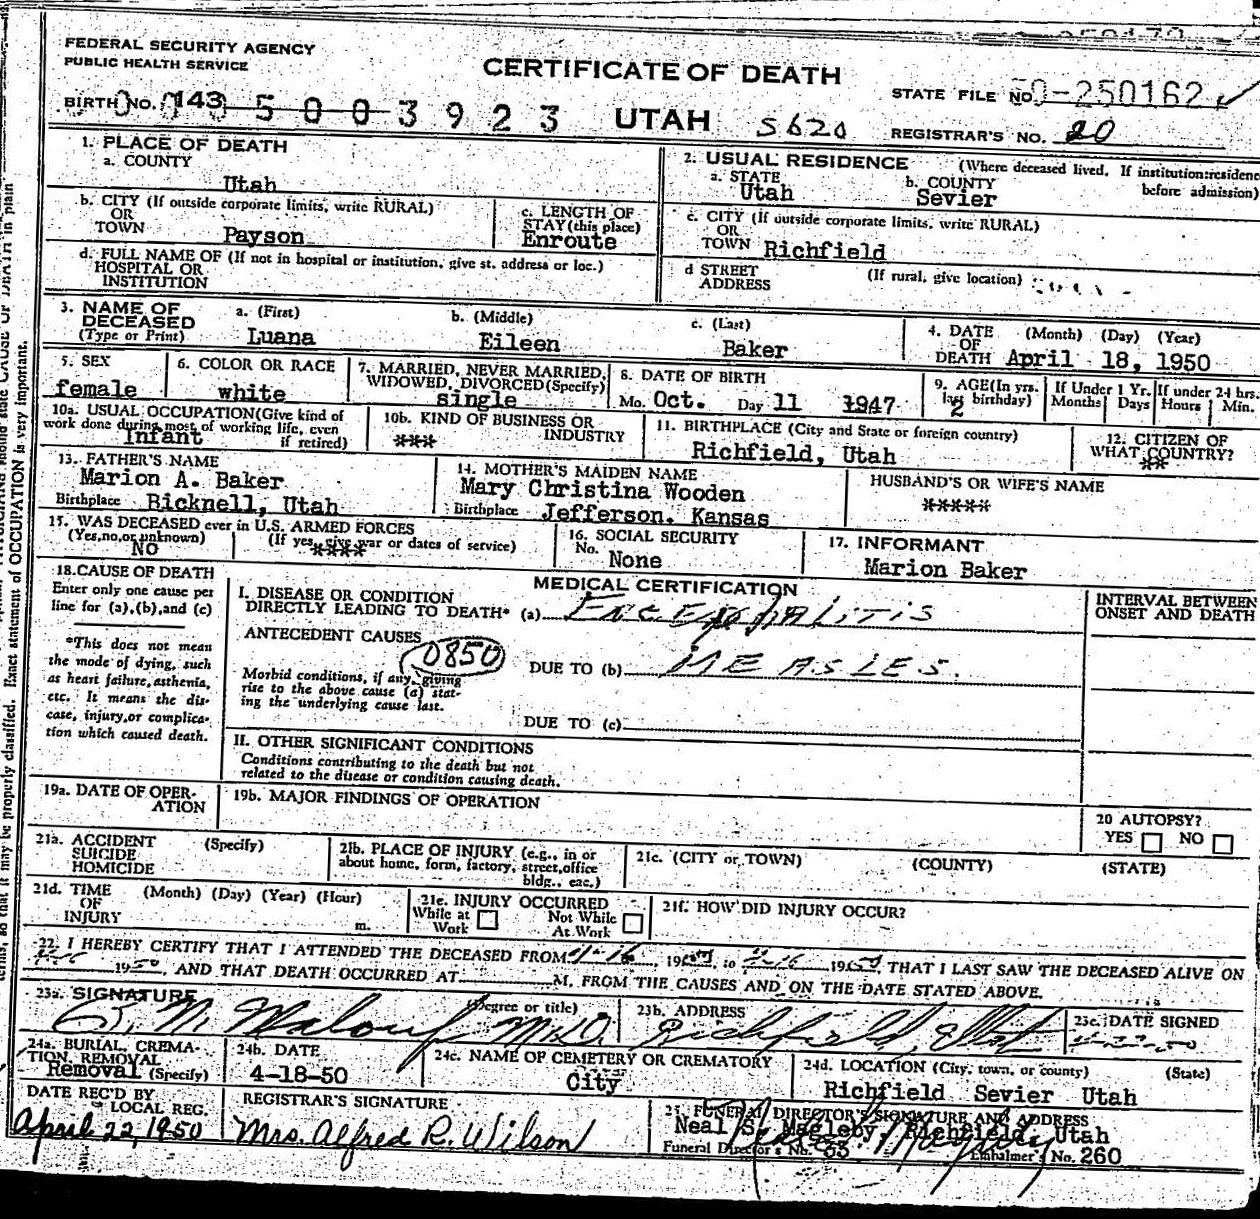 FEDERAL SECURITY AGENCY
PUBLIC HEALTH SERVICE
CERTIFICATE OF DEATH
STATE FILE NO. 50-250162
BIRTH NO. 143 5003923 UTAH S620
REGISTRAR'S NO. 20
1. PLACE OF DEATH
a. COUNTY
Utah
2. USUAL RESIDENCE (Where deceased lived. If institution:residence before admission)
a. STATE
Utah
b. COUNTY
Sevier
b. CITY (If outside corporate limits, write RURAL)
OR
TOWN Payson
c. LENGTH OF
STAY (this place)
Enroute
c. CITY (If outside corporate limits, write RURAL)
OR
TOWN Richfield
d. FULL NAME OF (If not in hospital or institution, give st. address or loc.)
HOSPITAL OR
INSTITUTION
d STREET (If rural, give location)
ADDRESS
3. NAME OF
DECEASED
(Type or Print)
a. (First)
Luana
b. (Middle)
Eileen
c. (Last)
Baker
4. DATE (Month) (Day) (Year)
OF
DEATH April 18, 1950
5. SEX
female
6. COLOR OR RACE
white
7. MARRIED, NEVER MARRIED,
WIDOWED, DIVORCED (Specify)
single
8. DATE OF BIRTH
Mo. Oct. Day 11 1947
9. AGE (In yrs.
last birthday)
2
If Under 1 Yr.
Months Days
If under 24 hrs.
Hours Min.
10a. USUAL OCCUPATION (Give kind of
work done during most of working life, even
if retired)
Infant
10b. KIND OF BUSINESS OR
INDUSTRY
***
11. BIRTHPLACE (City and State or foreign country)
Richfield, Utah
12. CITIZEN OF
WHAT COUNTRY?
**
13. FATHER'S NAME
Marion A. Baker
Birthplace Bicknell, Utah
14. MOTHER'S MAIDEN NAME
Mary Christina Wooden
Birthplace Jefferson. Kansas
HUSBAND'S OR WIFE'S NAME
*****
15. WAS DECEASED ever in U.S. ARMED FORCES
(Yes,no,or unknown)
NO
(If yes, give war or dates of service)
****
16. SOCIAL SECURITY
No. None
17. INFORMANT
Marion Baker
18. CAUSE OF DEATH
Enter only one cause per
line for (a),(b),and (c)
*This does not mean
the mode of dying, such
as heart failure, asthenia,
etc. It means the dis-
ease, injury, or complica-
tion which caused death.
MEDICAL CERTIFICATION
I. DISEASE OR CONDITION
DIRECTLY LEADING TO DEATH* (a) ENCEPHALITIS
ANTECEDENT CAUSES
0850
DUE TO (b) MEASLES.
Morbid conditions, if any, giving
rise to the above cause (a) stat-
ing the underlying cause last.
DUE TO (c)
INTERVAL BETWEEN
ONSET AND DEATH
II. OTHER SIGNIFICANT CONDITIONS
Conditions contributing to the death but not
related to the disease or condition causing death.
19a. DATE OF OPER-
ATION
19b. MAJOR FINDINGS OF OPERATION
20 AUTOPSY?
YES NO
21a. ACCIDENT (Specify)
SUICIDE
HOMICIDE
21b. PLACE OF INJURY (e.g., in or
about home, form, factory, street, office
bldg., eac.)
21c. (CITY or TOWN) (COUNTY) (STATE)
21d. TIME (Month) (Day) (Year) (Hour)
OF
INJURY m.
21e. INJURY OCCURRED
While at
Work
Not While
At Work
21f. HOW DID INJURY OCCUR?
22. I HEREBY CERTIFY THAT I ATTENDED THE DECEASED FROM 4-16, 1950, to 4-16 1950, THAT I LAST SAW THE DECEASED ALIVE ON
1950, AND THAT DEATH OCCURRED AT M. FROM THE CAUSES AND ON THE DATE STATED ABOVE.
23a. SIGNATURE (Degree or title)
Malouf M.D.
23b. ADDRESS
Richfield, Utah
23c. DATE SIGNED
24a. BURIAL, CREMA-
TION, REMOVAL
Removal (Specify)
24b. DATE
4-18-50
24c. NAME OF CEMETERY OR CREMATORY
City
24d. LOCATION (City, town, or county) (State)
Richfield Sevier Utah
DATE REC'D BY
LOCAL REG.
April 22, 1950
REGISTRAR'S SIGNATURE
Mrs. Alfred R. Wilson
25. FUNERAL DIRECTOR'S SIGNATURE AND ADDRESS
Neal S. Magleby, Richfield, Utah
Funeral Director's No. 33 Embalmer's No. 260